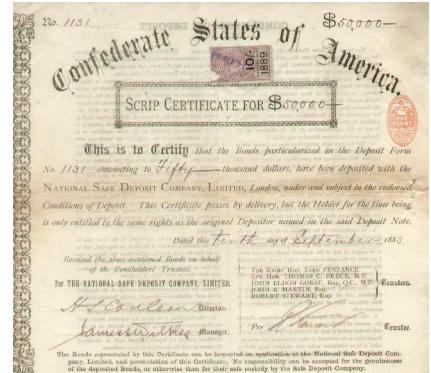 No. 1131 $50,000—
Confederate States of America.
10/-
1889
SCRIP CERTIFICATE FOR $50,000—
This is to Certify that the Bonds particularized in the Deposit Form
No. 1131 amounting to Fifty thousand dollars, have been deposited with the
NATIONAL SAFE DEPOSIT COMPANY, LIMITED, London, under and subject to the endorsed
Conditions of Deposit. This Certificate passes by delivery, but the Holder for the time being
is only entitled to the same rights as the original Depositor named in the said Deposit Note.
Dated this tenth day of September 1883
Received the above mentioned Bonds on behalf
of the Bondholders' Trustees.
For THE NATIONAL SAFE DEPOSIT COMPANY, LIMITED.
Director.
Manager.
THE RIGHT HON. LORD PENZANCE
THE HON. THOMAS C. BRUCE, M.P.
JOHN ELDON GORST, Esq., Q.C., M.P.
JOHN B. MARTIN, Esq.
ROBERT STEWART, Esq.
Trustees.
Per Trustee.
The Bonds represented by this Certificate can be inspected on application at the National Safe Deposit Com-
pany, Limited, and presentation of this Certificate. No responsibility can be accepted for the genuineness
of the deposited Bonds, or otherwise than for their safe custody by the Safe Deposit Company.